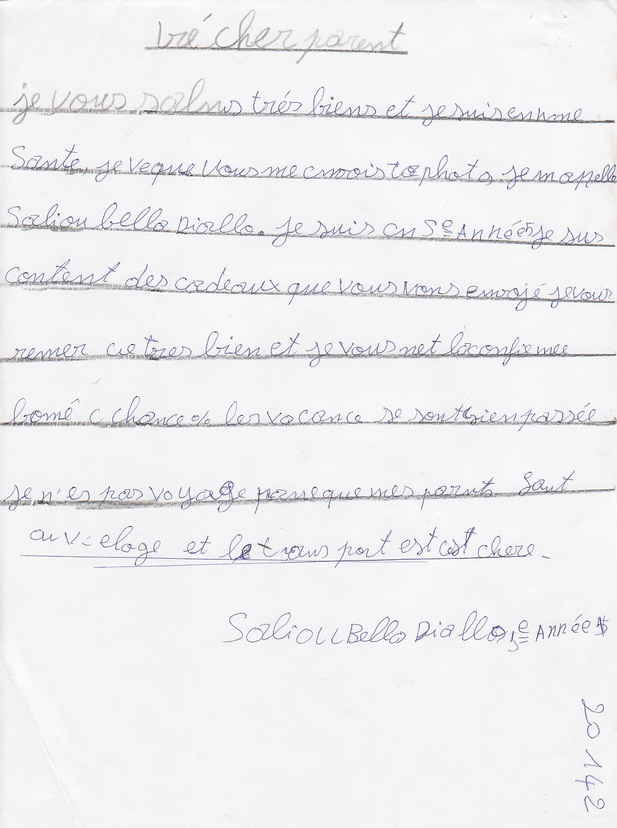 tré cher parent
je vous salus trés biens et je suis en nme
Sante, je veque vous me cnvois ta photo, je mapelle
Saliou bella Diallo. je suis en 5e Année je sus
content des cadeaux que vous vons envojé je vous
remer cie tres bien et je vous net la confiemee
bomé c chance % les vacance se sont bien passée
je n'es pas voyage parseque mes parents Sont
au v-eloge et le trans port est cot chere -
Saliou Bella Diallo 5e Année
20 142